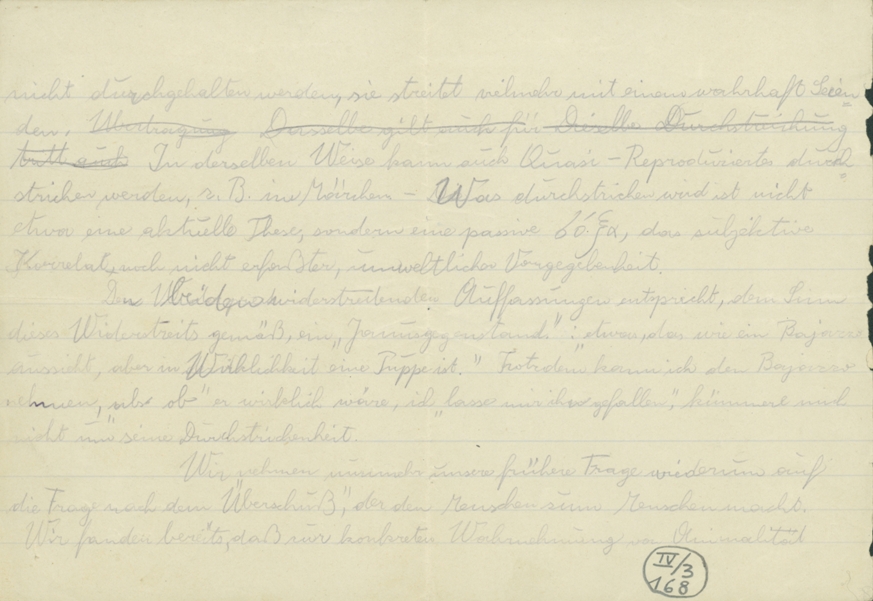 nicht durchgehalten werden, sie streitet vielmehr mit einem wahrhaft Seien=
den. Übertragung Dasselbe gilt auch für Dieselbe Durchstreichung
tritt auch In derselben Weise kann auch Quasi-Reproduziertes durch=
strichen werden, z. B. im Märchen - Was durchstrichen wird ist nicht
etwa eine aktuelle These, sondern eine passive δόξα, das subjektive
Korrelat noch nicht erfaßter, umweltlicher Vorgegebenheit.
Den widerstreitenden Auffassungen entspricht, dem Sinn
dieses Widerstreits gemäß, ein "Janusgegenstand": etwas, das wie ein Bajazzo
aussieht, aber in Wirklichkeit eine Puppe ist. "Trotzdem" kann ich den Bajazzo
nehmen, "als ob" er wirklich wäre, ich "lasse mir ihn gefallen", kümmere mich
nicht um seine Durchstrichenheit.
Wir nehmen nunmehr unsere frühere Frage wiederum auf
die Frage nach dem "Überschuß", der den Menschen zum Menschen macht.
Wir fanden bereits, daß zur konkreten Wahrnehmung von Animalität
IV/3
168